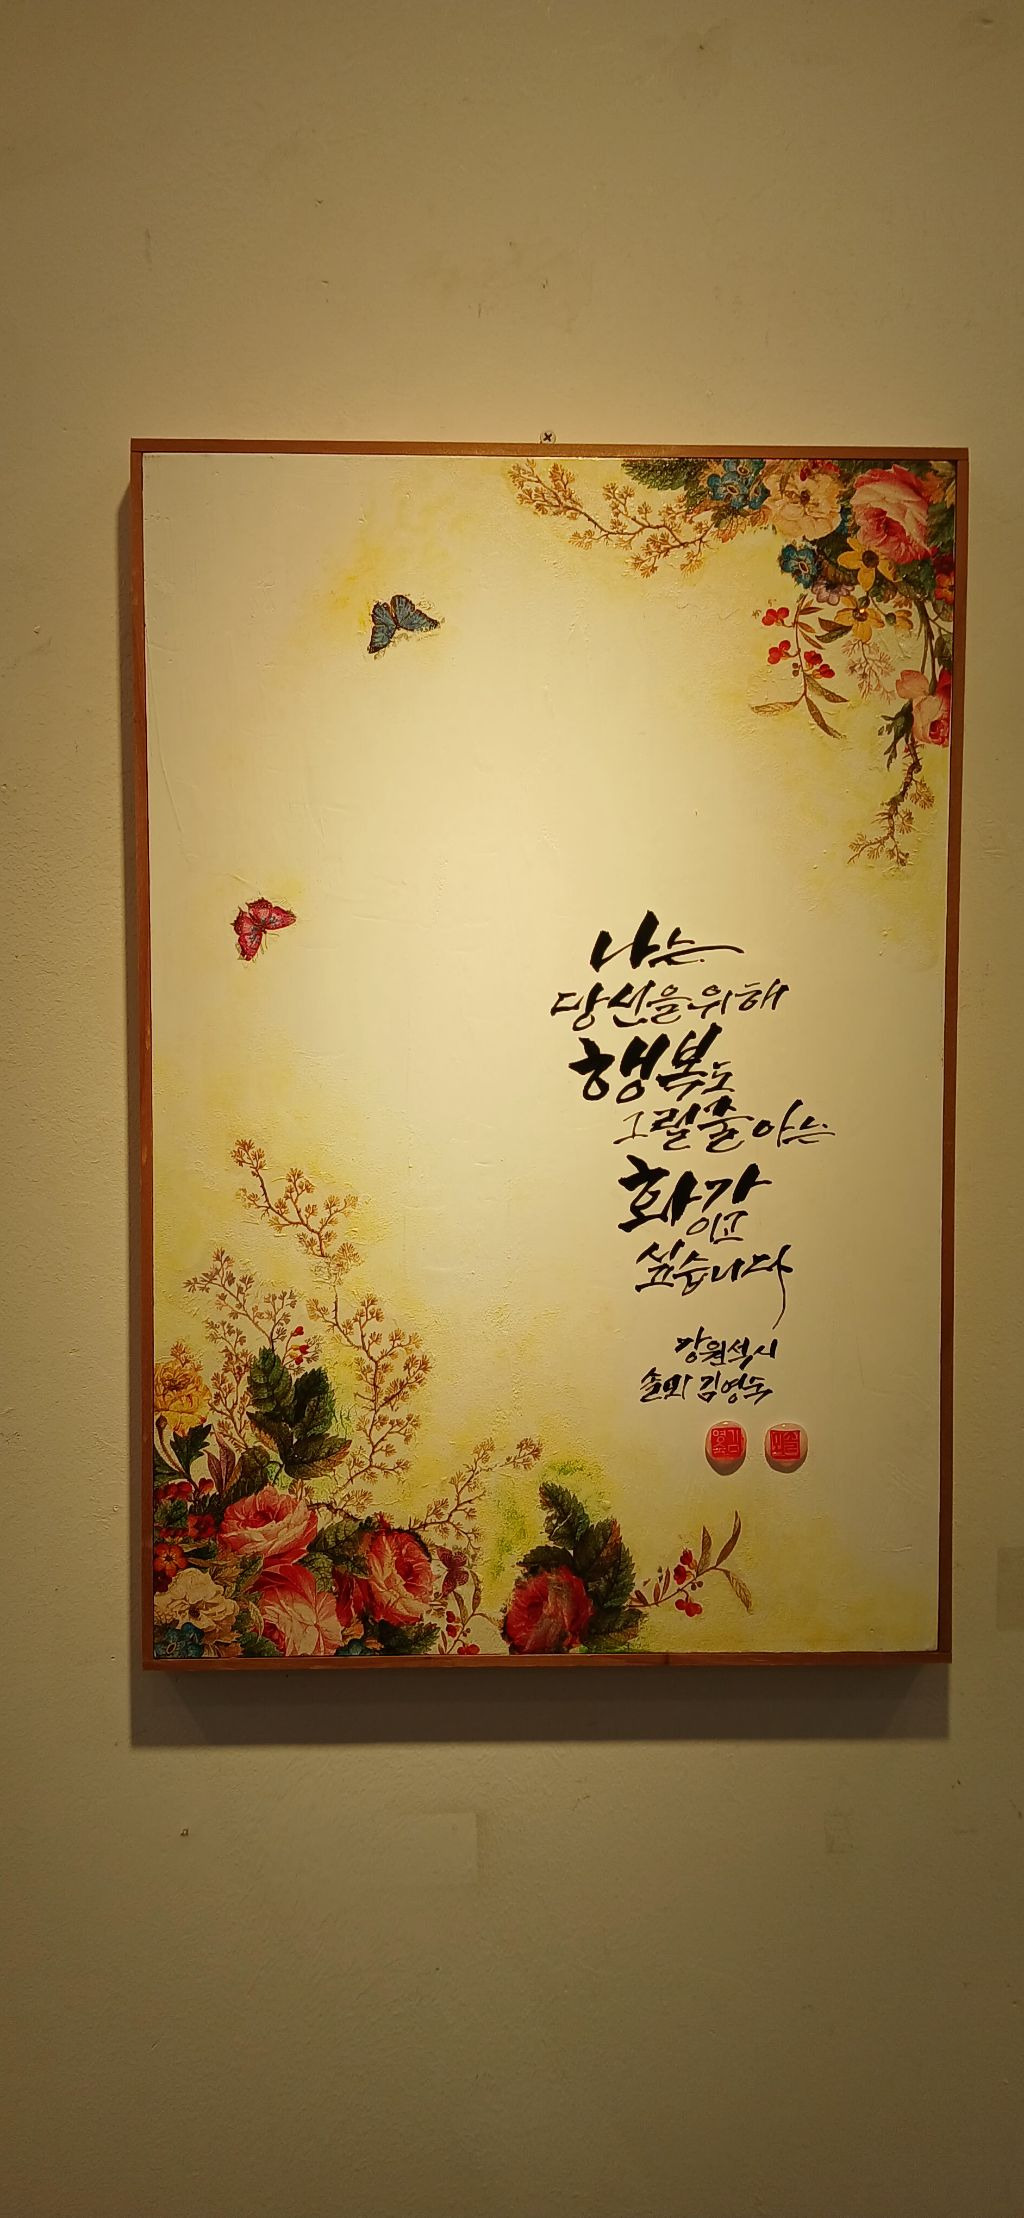 나는
당신을 위해
행복도
그릴줄 아는
화가
이고
싶습니다
강원석 시
솔뫼 김영숙